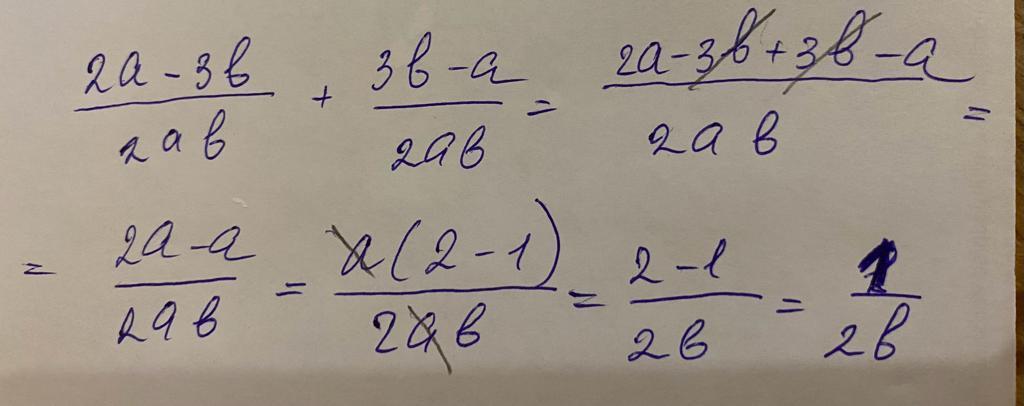 (2a - 3b)/(2ab) + (3b - a)/(2ab) = (2a - 3b + 3b - a)/(2ab) =
= (2a - a)/(2ab) = (a(2 - 1))/(2ab) = (2 - 1)/(2b) = 1/(2b)